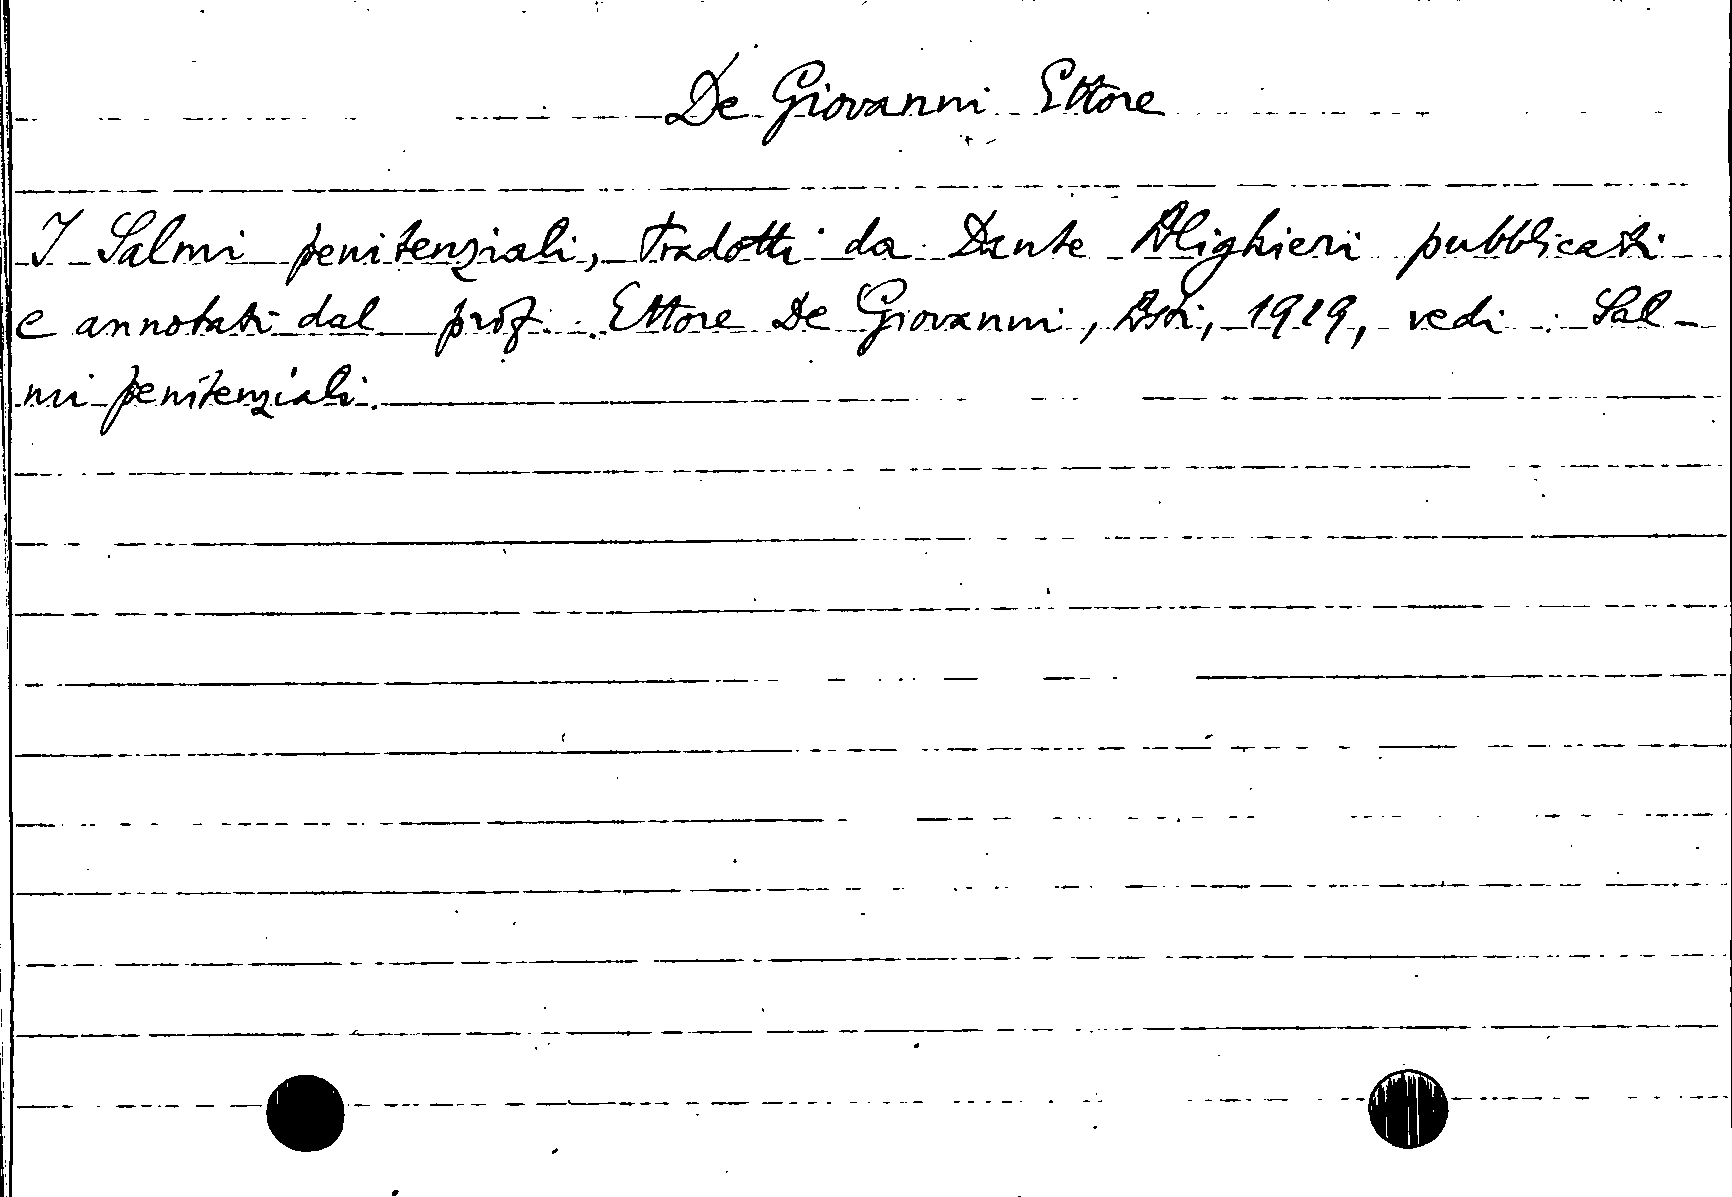 De Giovanni Ettore
I Salmi penitenziali, tradotti da Dante Alighieri pubblicati
e annotati dal prof. Ettore De Giovanni, Asti, 1919, vedi : Sal-
mi penitenziali.